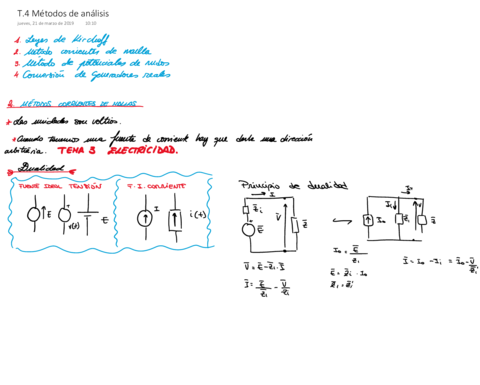 T.4 Métodos de análisis
jueves, 21 de marzo de 2019 10:10
1. Leyes de Kirchoff
2. Método corrientes de malla
3. Método de potenciales de nudos
4 Conversión de Generadores reales
2. MÉTODOS CORRIENTES DE MALLAS
* Las unidades son voltios.
* Cuando tenemos una fuente de corriente hay que darle una dirección
arbitraria. TEMA 3 ELECTRICIDAD.
* Dualidad
FUENTE IDEAL TENSIÓN
F. I. CORRIENTE
E
v(t)
E
I
i(t)
Principio de dualidad
I
Z̄i
Ē
V̄
Z̄
V̄ = Ē - Z̄i · Ī
Ī = Ē/Z̄i - V̄/Z̄i
I₀ = Ē/Z̄i
Ē = Z̄i · I₀
Z̄i = Z̄i
I₀
Ii
Z̄i
V
Z̄
Ī = I₀ - Ii = I₀ - V̄/Z̄i